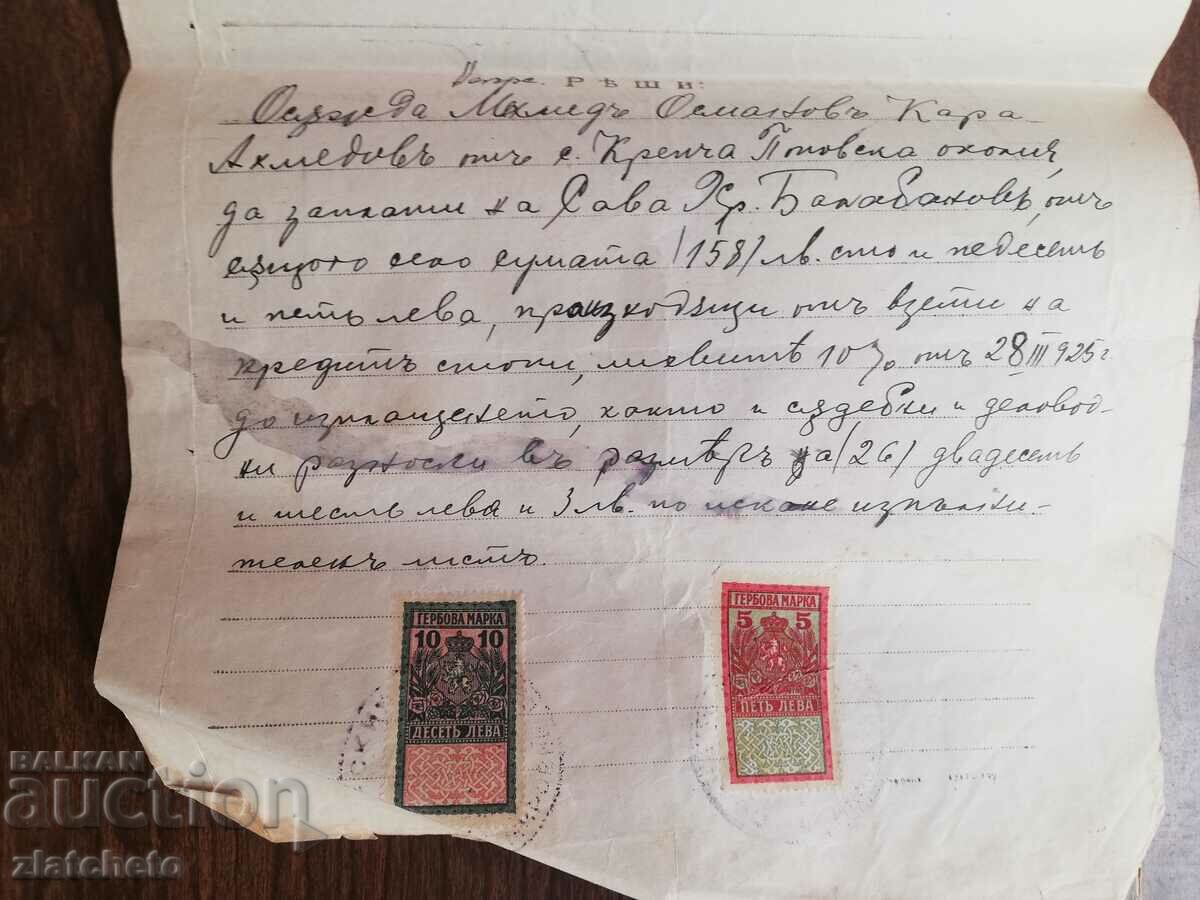 РѢШИ:
Осѫжда Мехмедъ Османовъ Кара
Ахмедовъ отъ с. Крепча Поповска околия,
да заплати на Сава Хр. Балабановъ, отъ
сѫщото село сумата (158) лв. сто и педесеть
и петь лева, произходящи отъ взети на
кредитъ стоки, лихвитѣ 10% отъ 28 III 925 г.
до изплащането, както и сѫдебни и деловод-
ни разноски въ размѣръ на (26) двадесеть
и шесть лева и 3 лв. по искане изпълни-
теленъ листъ.
ГЕРБОВА МАРКА
10 10
ДЕСЕТЬ ЛЕВА
ГЕРБОВА МАРКА
5 5
ПЕТЬ ЛЕВА
BALKAN
auction
zlatcheto